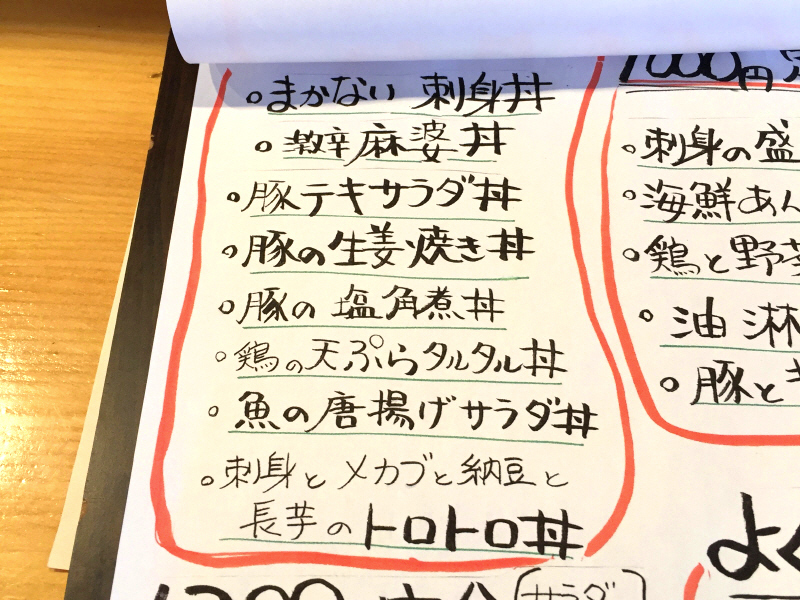 まかない 刺身丼
激辛麻婆丼
豚テキサラダ丼
豚の生姜焼き丼
豚の塩角煮丼
鶏の天ぷらタルタル丼
魚の唐揚げサラダ丼
刺身とメカブと納豆と
長芋のトロトロ丼
1000円
刺身の盛
海鮮あん
鶏と野菜
油淋
豚と
よく
サラダ